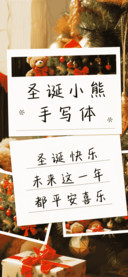 圣诞小熊
手写体
圣诞快乐
未来这一年
都平安喜乐